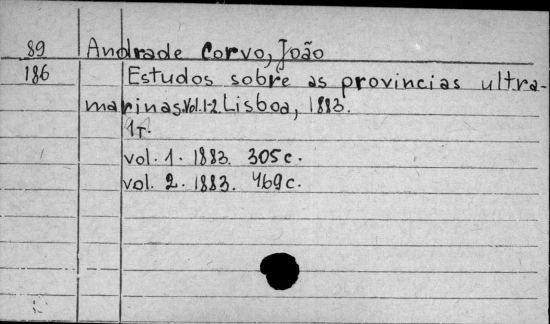 89 Andrade Corvo, João
186 Estudos sobre as provincias ultra-
marinas.Vol.1-2. Lisboa, 1883.
vol. 1. 1883. 305 c.
vol. 2. 1883. 469 c.